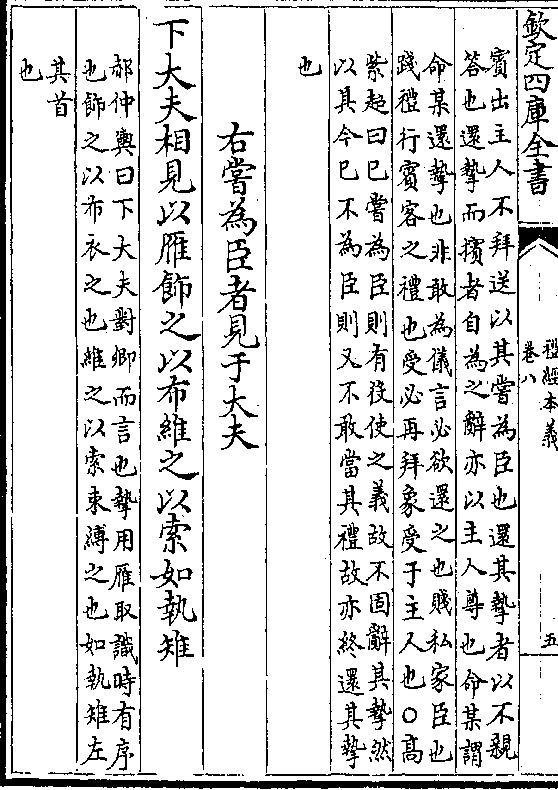 欽定四庫全書
禮經本義
卷八
五
賓出主人不拜送以其嘗為臣也還其摯者以不親
答也還摯而擯者自為之辭亦以主人尊也命某謂
命某還摯也非敢為儀言必欲還之也賤私家臣也
踐禮行賓客之禮也受必再拜象受于主人也○高
紫超曰已嘗為臣則有役使之義故不固辭其摯然
以其今已不為臣則又不敢當其禮故亦終還其摯
也
右嘗為臣者見于大夫
下大夫相見以雁飾之以布維之以索如執雉
郝仲輿曰下大夫對卿而言也摯用雁取識時有序
也飾之以布衣之也維之以索束縛之也如執雉左
其首
也